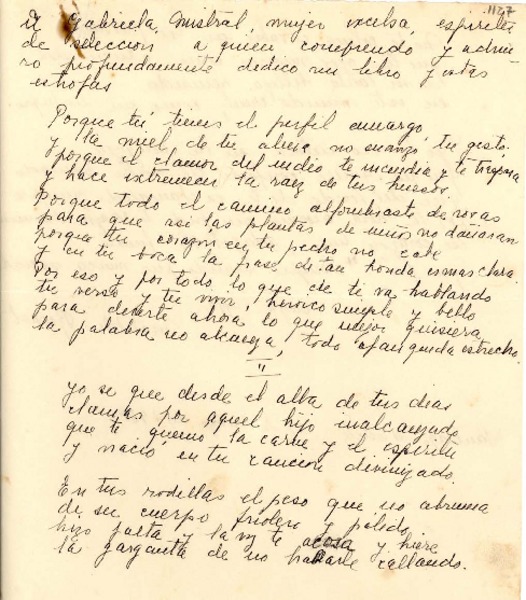 1127
A Gabriela Mistral, mujer excelsa, espíritu
de selección a quien comprendo y admi-
ro profundamente dedico mi libro y estas
estrofas
Porque tú tienes el perfil amargo,
y la miel de tu alma no avanza tu gesto,
porque el clamor del indio te incendia y te
y hace estremecer la raiz de tus huesos.
Porque todo el camino alfombraste de rosas
para que asi las plantas de niños no dañaran
porque tu corazón en tu pecho no cabe
y en tu boca la frase de tan honda es mas clara.
Por eso y por todo lo que de ti va hablando
tu verso y tu vivir, heroico simple y bello
para decirte ahora lo que mejor quisiera
la palabra no alcanza, todo queda estrecho.
II
Yo se que desde el alba de tus dias
clamas por aquel hijo inalcanzado
que te quemó la carne y el espiritu
y nació en tu cancion divinizado.
En tus rodillas el peso que no abruma
de su cuerpo friolero y pálido,
hizo falta y la voz te acosa y hiere
la garganta de no hablarle callando.